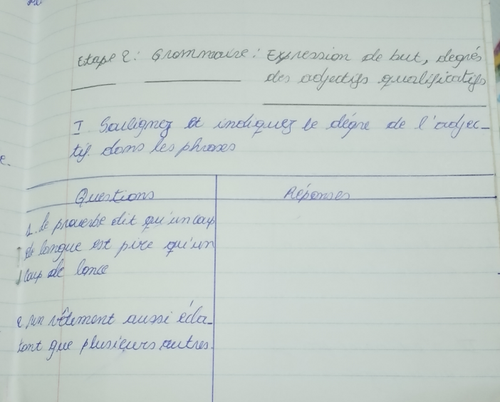 Etape 2: Grammaire: Expression de but, degrés
des adjectifs qualificatifs
I Soulignez et indiquez le dégre de l'adjec-
tif dans les phrases
Questions
Réponses
1. le proverbe dit qu'un coup
de langue est pire qu'un
coup de lance
2 vêtement aussi écla-
tant que plusieurs autres.